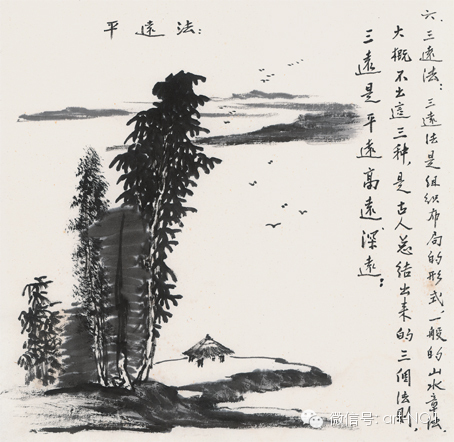 六.三遠法：三遠法是组织布局的形式,一般的山水章法,
大概不出這三种,是古人总结出来的三個法則,
三遠是平遠高遠深遠；
平遠法：
微信号: